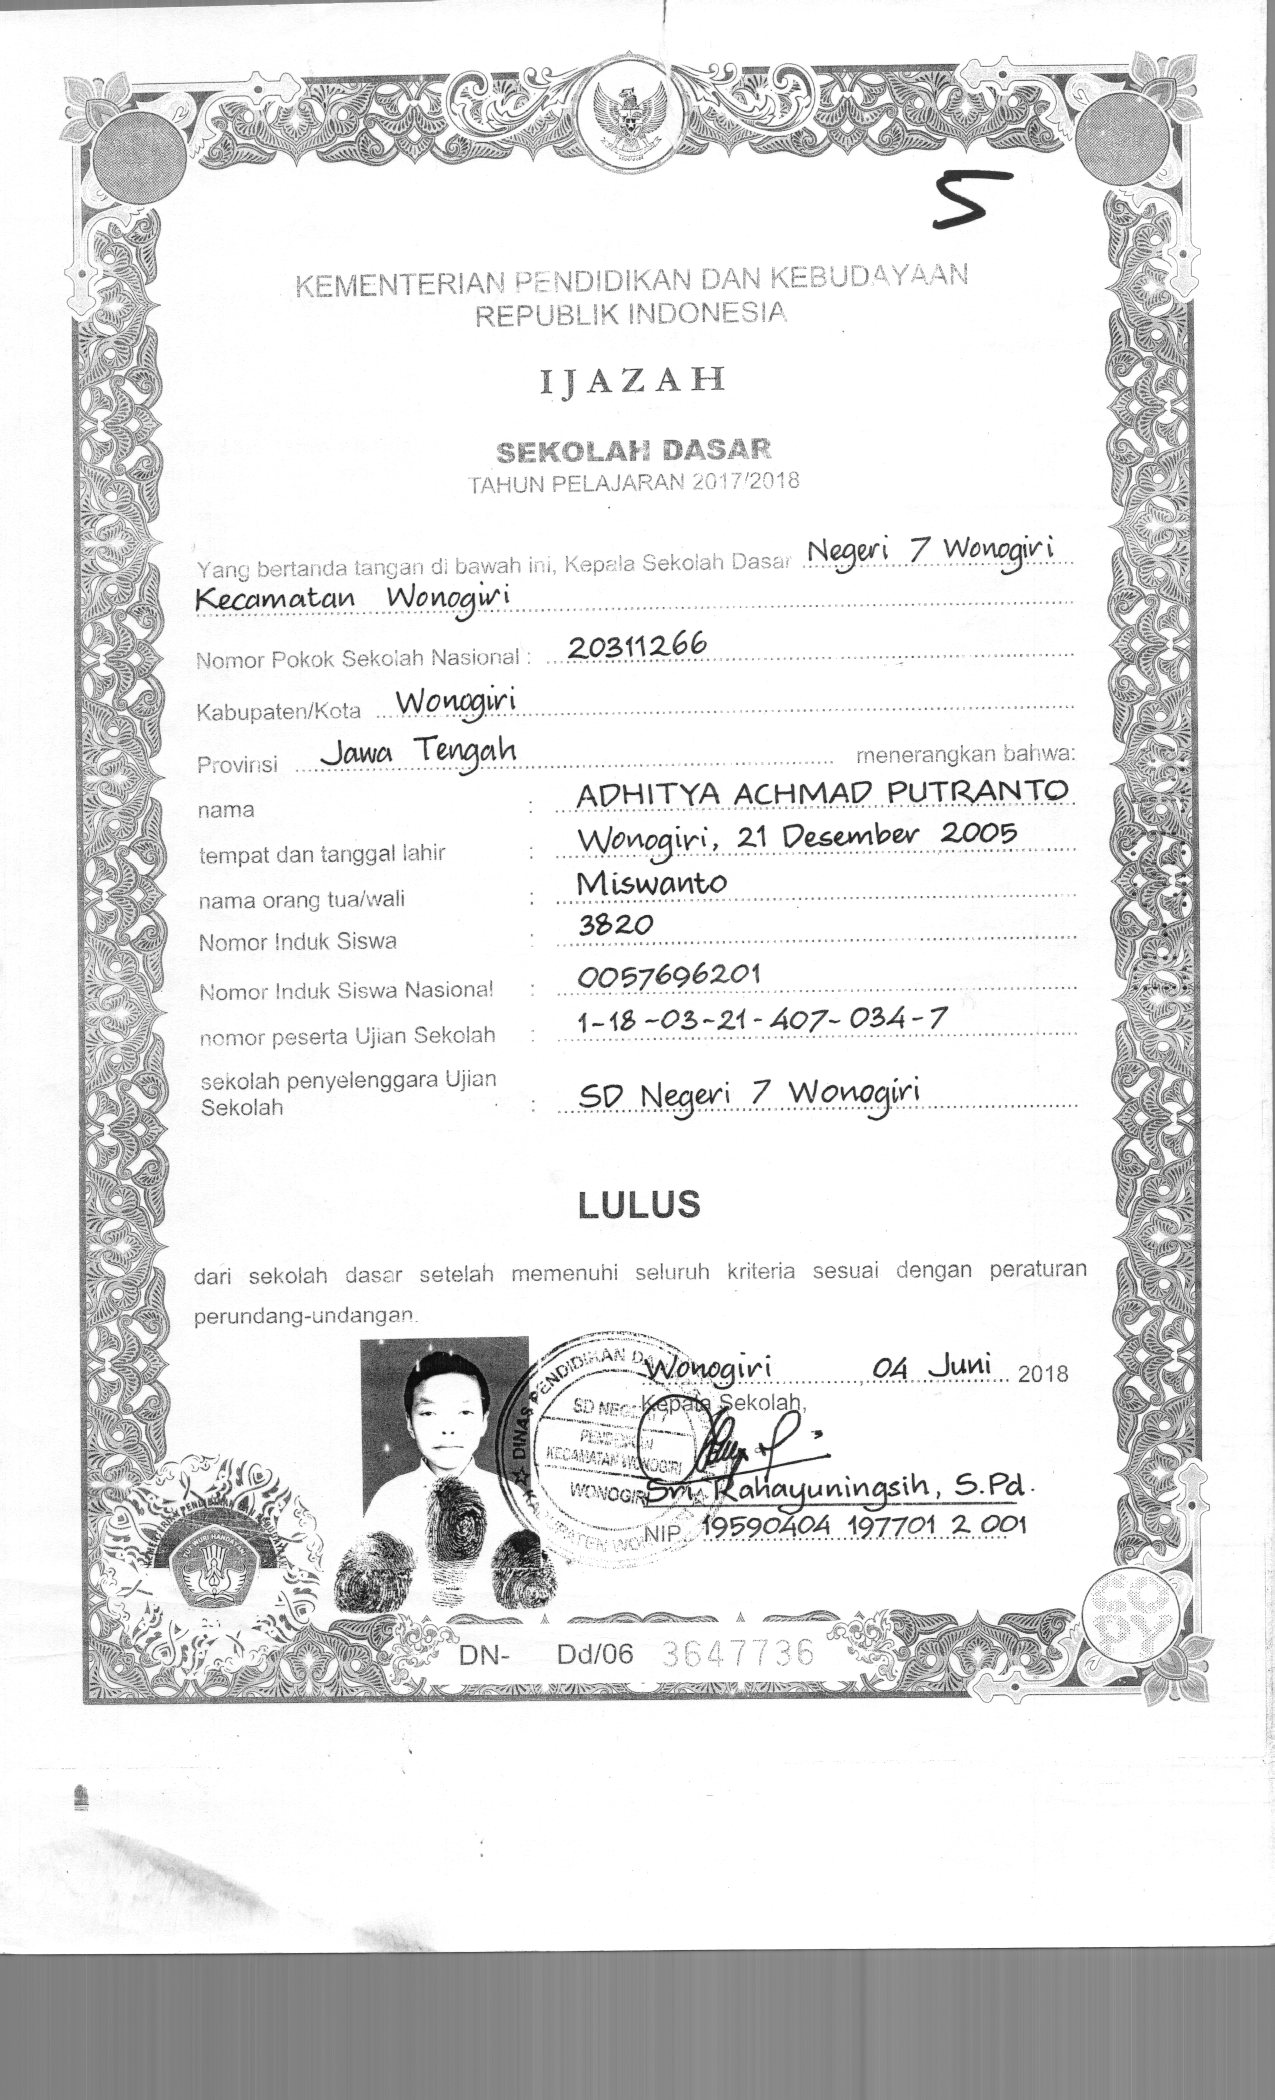 5
KEMENTERIAN PENDIDIKAN DAN KEBUDAYAAN
REPUBLIK INDONESIA
IJAZAH
SEKOLAH DASAR
TAHUN PELAJARAN 2017/2018
Yang bertanda tangan di bawah ini, Kepala Sekolah Dasar Negeri 7 Wonogiri
Kecamatan Wonogiri
Nomor Pokok Sekolah Nasional : 20311266
Kabupaten/Kota Wonogiri
Provinsi Jawa Tengah menerangkan bahwa:
nama : ADHITYA ACHMAD PUTRANTO
tempat dan tanggal lahir : Wonogiri, 21 Desember 2005
nama orang tua/wali : Miswanto
Nomor Induk Siswa : 3820
Nomor Induk Siswa Nasional : 0057696201
nomor peserta Ujian Sekolah : 1-18-03-21-407-034-7
sekolah penyelenggara Ujian
Sekolah : SD Negeri 7 Wonogiri
LULUS
dari sekolah dasar setelah memenuhi seluruh kriteria sesuai dengan peraturan
perundang-undangan.
Wonogiri, 04 Juni 2018
Kepala Sekolah,
DINAS PENDIDIKAN
SD NEGERI 7
KECAMATAN WONOGIRI
WONOGIRI
Sri Rahayuningsih, S.Pd.
NIP. 19590404 197701 2 001
DN- Dd/06 3647736